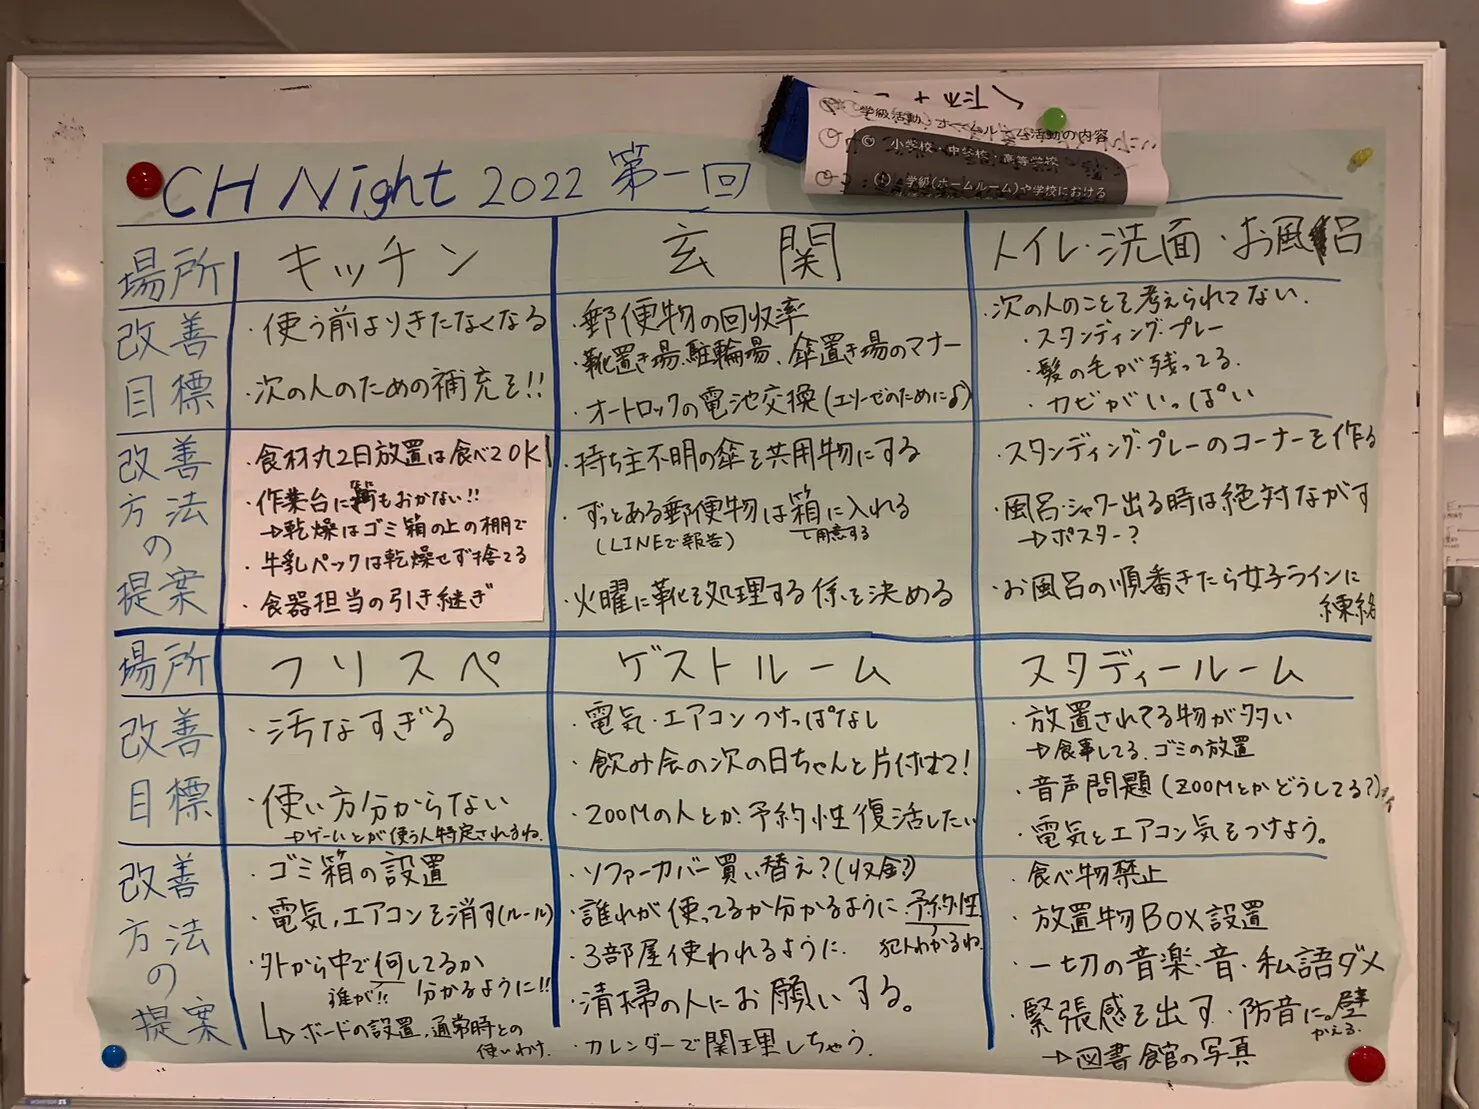 学級活動、ホームルーム活動の内容
小学校・中学校・高等学校
学級(ホームルーム)や学校における
CH Night 2022 第一回
場所
キッチン
玄関
トイレ・洗面・お風呂
改善目標
・使う前よりきたなくなる
・次の人のための補充を!!
・郵便物の回収率
・靴置き場、駐輪場、傘置き場のマナー
・オートロックの電池交換(エリーゼのために♪)
・次の人のことを考えられてない.
・スタンディング・プレー
・髪の毛が残ってる.
・カビがいっぱい
改善方法の提案
・食材丸2日放置は食べてOK!
・作業台に何もおかない!!
→乾燥はゴミ箱の上の棚で
・牛乳パックは乾燥せず捨てる
・食器担当の引き継ぎ
・持ち主不明の傘を共用物にする
・ずっとある郵便物は箱に入れる
(LINEで報告)
用意する
・火曜に靴を処理する係を決める
・スタンディング・プレーのコーナーを作る
・風呂・シャワー出る時は絶対ながす
→ポスター?
・お風呂の順番きたら女子ラインに
練絡
場所
フリスペ
ゲストルーム
スタディールーム
改善目標
・汚なすぎる
・使い方分からない
→ゲームとかが使う人特定されるね.
・電気・エアコンつけっぱなし
・飲み会の次の日ちゃんと片付けて!
・ZOOMの人とか.予約性復活したい
・放置されてる物が多い
→食事してる.ゴミの放置
・音声問題(ZOOMとかどうしてる?)
・電気とエアコン気をつけよう。
改善方法の提案
・ゴミ箱の設置
・電気,エアコンを消す(ルール)
・外から中で何してるか
誰が!! 分かるように!!
→ボードの設置,通常時との
使いわけ.
・ソファーカバー買い替え?(収金?)
・誰れが使ってるか分かるように予約性
犯人わかるね.
・3部屋使われるように.
・清掃の人にお願いする。
・カレンダーで関理しちゃう.
・食べ物禁止
・放置物BOX設置
・一切の音楽・音・私語ダメ
・緊張感を出す.防音に。壁
かえる.
→図書館の写真